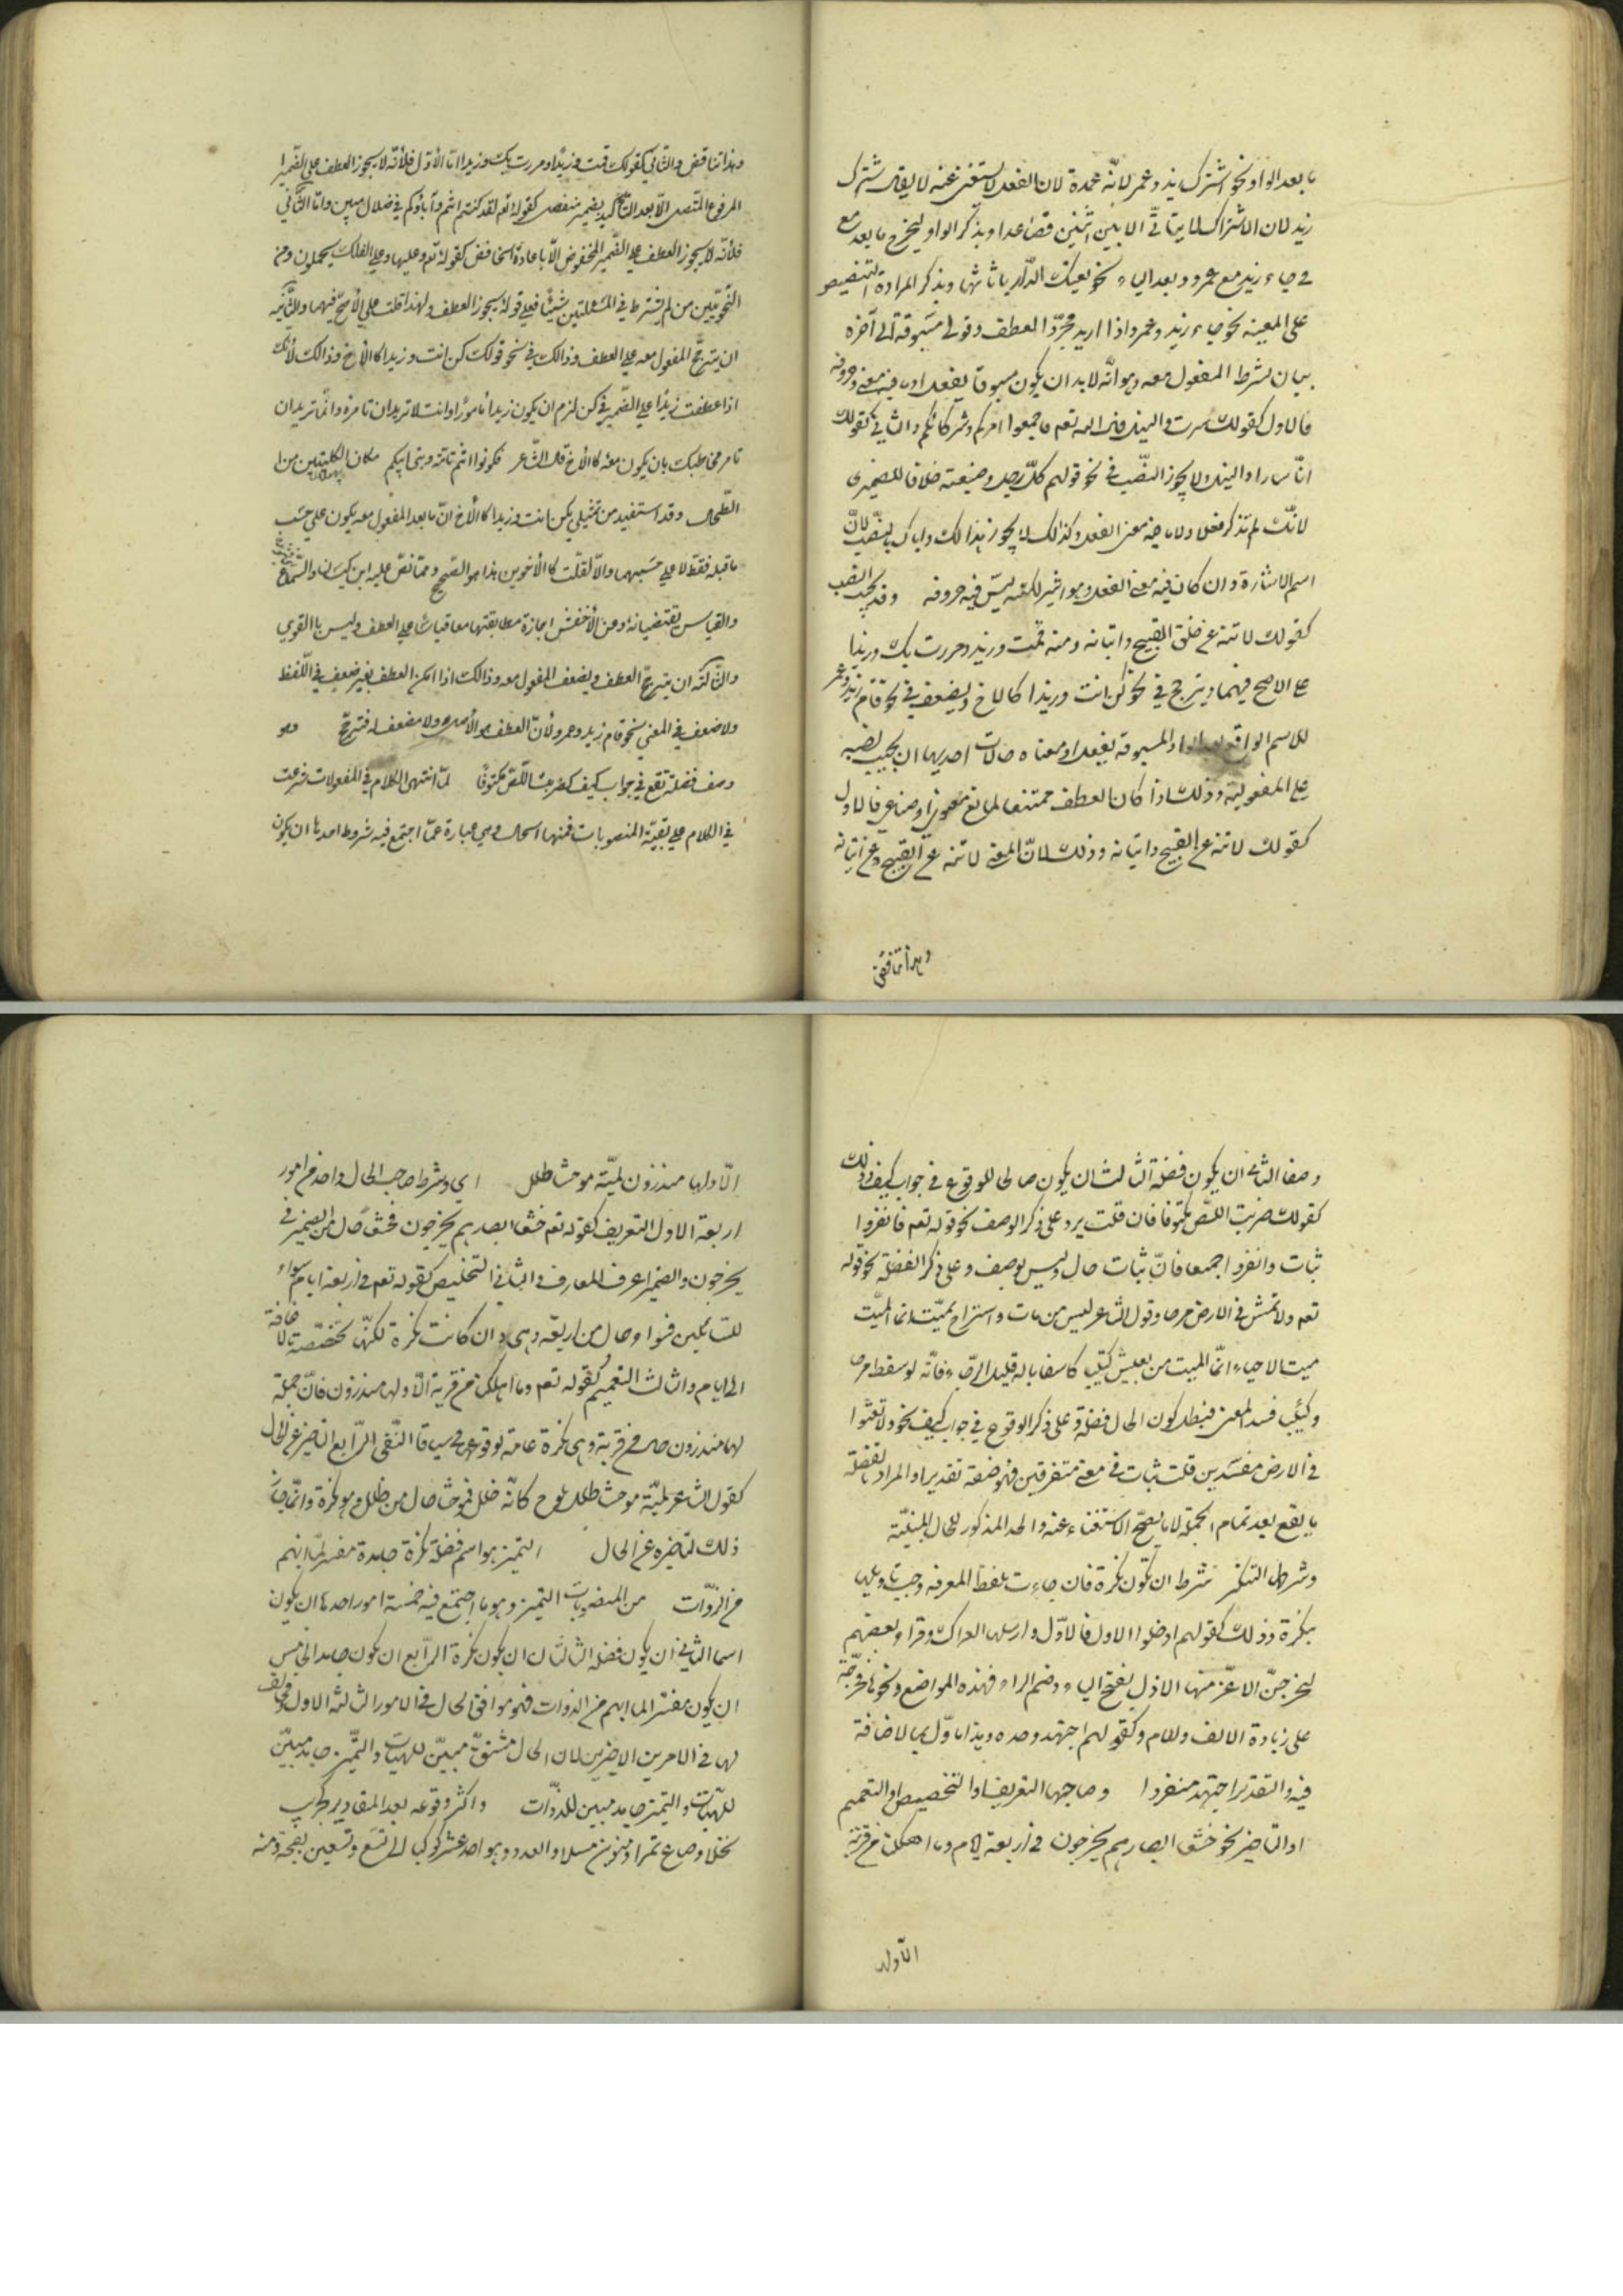 ما بعد الواو نحو اشترك زيد وعمر لانه عمدة لان الفعل لا يستغنى عنه لا يقال اشترك
زيد لان الاشتراك لا يتاتى الا بين اثنين فصاعدا وبذكر الواو ليخرج ما بعد مع
في جاء زيد مع عمرو وبعد الباء نحو بعتك الدار باثاثها وبذكر المرادة التنصيص
على المعية نحو جاء زيد وعمرو اذا اريد مجرد العطف وقولي مسبوقة الى آخره
بيان لشرط المفعول معه وهو انه لا بد ان يكون مسبوقا بفعل او ما فيه معنى وحروفه
فالاول كقولك سرت والنيل وقال الله تعم فاجمعوا امركم وشركائكم والثاني كقولك
انا سائر والنيل ولا يجوز النصب في نحو قولهم كل رجل وضيعته خلافا للصيمري
لانك لم تذكر فعلا ولا ما فيه معنى الفعل وكذلك لا يجوز هذا لك واباك بالنصب لان
اسم الاشارة وان كان فيه معنى الفعل وهو اشير لكنه ليس فيه حروفه وقد يجب النصب
كقولك لا تنه عن خلق القبيح واتيانه ومنه قمت وزيد ومررت بك وزيدا
على الاصح فيهما ويترجح في نحو كن انت وزيدا كالاخ ويضعف في نحو قام زيد وعمر
للاسم الواقع بعد الواو المسبوقة بفعل او معناه حالات احديها ان يجب نصبه
على المفعولية وذلك اذا كان العطف ممتنعا لمانع معنوي او صناعي فالاول
كقولك لا تنه عن القبيح واتيانه وذلك لان المعنى لا تنه عن القبيح وعن اتيانه
وهذا تناقض
وهذا تناقض والثاني كقولك قمت وزيدا ومررت بك وزيدا اما الأول فلأنه لا يجوز العطف على الضمير
المرفوع المتصل الا بعد التأكيد بضمير منفصل كقوله تعم لقد كنتم انتم وآباؤكم في ضلال مبين واما الثاني
فلأنه لا يجوز العطف على الضمير المخفوض الا باعادة الخافض كقوله تعم وعليها وعلى الفلك تحملون ومن
النحويين من لم يشترط في المسئلتين شيئا فعلى قوله يجوز العطف ولهذا قلت على الأصح فيهما والثانية
ان يترجح المفعول معه على العطف وذالك في نحو قولك كن انت وزيدا كالأخ وذالك لأنك
اذا عطفت زيدا على الضمير في كن لزم ان يكون زيدا مأمورا وانت لا تريد ان تامره وانما تريد ان
تامر مخاطبك بان يكون معه كالأخ قال الشاعر فكونوا انتم وبني ابيكم مكان الكليتين من
الطحال وقد استفيد من تمثيلي بكن انت وزيدا كالأخ ان ما بعد المفعول معه يكون على حسب
ما قبله فقط لا على حسبهما والا لقلت كالأخوين هذا هو الصحيح وممن نص عليه ابن كيسان والسماع
والقياس يقتضيانه وعن الأخفش اجازة مطابقتهما قياسا على العطف وليس بالقوي
والثالثة ان يترجح العطف ويضعف المفعول معه وذالك اذا امكن العطف بغير ضعف في اللفظ
ولا ضعف في المعنى نحو قام زيد وعمرو لأن العطف هو الأصل ولا مضعف له فترجح وهو
وصف فضلة تقع في جواب كيف كضربت اللص مكتوفا لما انتهى الكلام في المفعولات شرعت
في الكلام على بقية المنصوبات فمنها الحال وهي عبارة عما اجتمع فيه شروط احدها ان يكون
وصفا الثاني ان يكون فضلة الثالث ان يكون صالحا للوقوع في جواب كيف وذلك
كقولك ضربت اللص مكتوفا فان قلت يرد على ذكر الوصف نحو قوله تعم فانفروا
ثبات وانفروا جميعا فان ثبات حال وليس بوصف وعلى ذكر الفضلة نحو قوله
تعم ولا تمش في الارض مرحا وقول الشاعر ليس من مات واستراح بميت انما الميت
ميت الاحياء انما الميت من يعيش كئيبا كاسفا باله قليل الرجاء فانه لو سقط مرحا
وكئيبا فسد المعنى فيبطل كون الحال فضلة وعلى ذكر الوقوع في جواب كيف نحو ولا تعثوا
في الارض مفسدين قلت ثبات في معنى متفرقين فهو وصفة تقديرا والمراد بالفضلة
ما يقع بعد تمام الجملة لا ما يصح الاستغناء عنه والحد المذكور للحال المبينة
وشرطها التنكير شرط ان تكون نكرة فان جاءت بلفظ المعرفة وجب تاويلها
بنكرة وذلك كقولهم ادخلوا الاول فالاول وارسلها العراك وقراء بعضهم
ليخرجن الاعز منها الاذل بفتح الياء وضم الراء فهذه المواضع ونحوها مخرجة
على زيادة الالف واللام وكقولهم اجتهد وحده وهذا ماول بما لا اضافة
فيه والتقدير اجتهد منفردا وصاحبها التعريف او التخصيص او التعميم
او التاخير نحو خشعا ابصارهم يخرجون في اربعة ايام وما اهلكنا من قرية
الا ولها
الا ولها منذرون لمية موحشا طلل اي وشرط صاحب الحال واحد من امور
اربعة الاول التعريف كقوله تعم خشعا ابصارهم يخرجون فخشعا حال من الضمير في
يخرجون والضمير اعرف المعارف والثاني التخصيص كقوله تعم في اربعة ايام سواء
للسائلين فسواء حال من اربعة وهي وان كانت نكرة لكنها تخصصت بالاضافة
الى ايام والثالث التعميم كقوله تعم وما اهلكنا من قرية الا ولها منذرون فان جملة
لها منذرون حال من قرية وهي نكرة عامة لوقوعها في سياق النفى الرابع التاخير عن الحال
كقول الشاعر لمية موحشا طلل يلوح كانه خلل فموحشا حال من طلل وهو نكرة وانما جاز
ذلك لتاخيره عن الحال التميز هو اسم فضلة نكرة جامدة مفسر لما انبهم
من الذوات من المنصوبات التميز وهو ما اجتمع فيه خمسة امور احدها ان يكون
اسما الثاني ان يكون فضلة الثالث ان يكون نكرة الرابع ان يكون جامدا الخامس
ان يكون مفسرا لما انبهم من الذوات فهو موافق للحال في الامور الثلثة الاول ومخالف
لها في الامرين الاخيرين لان الحال مشتق مبين للهيات والتميز جامد مبين
للهيات والتميز جامد مبين للذوات واكثر وقوعه بعد المقادير كجريب
نخلا وصاع تمرا ومنوين عسلا والعدد وهو احد عشر كوكبا الى تسع وتسعين نعجة ومنه